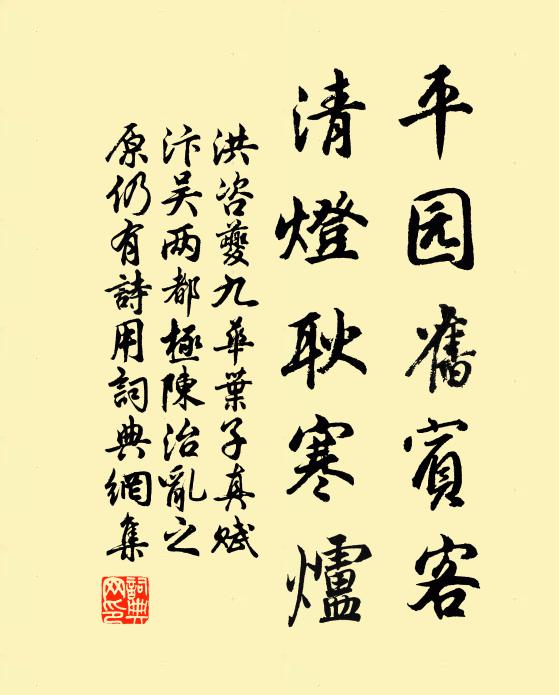 平园舊賓客
清燈耿寒爐
洪咨夔九華葉子真賦
汴吴两都極陳治亂之
原仍有詩用詞典網集
詞典網印